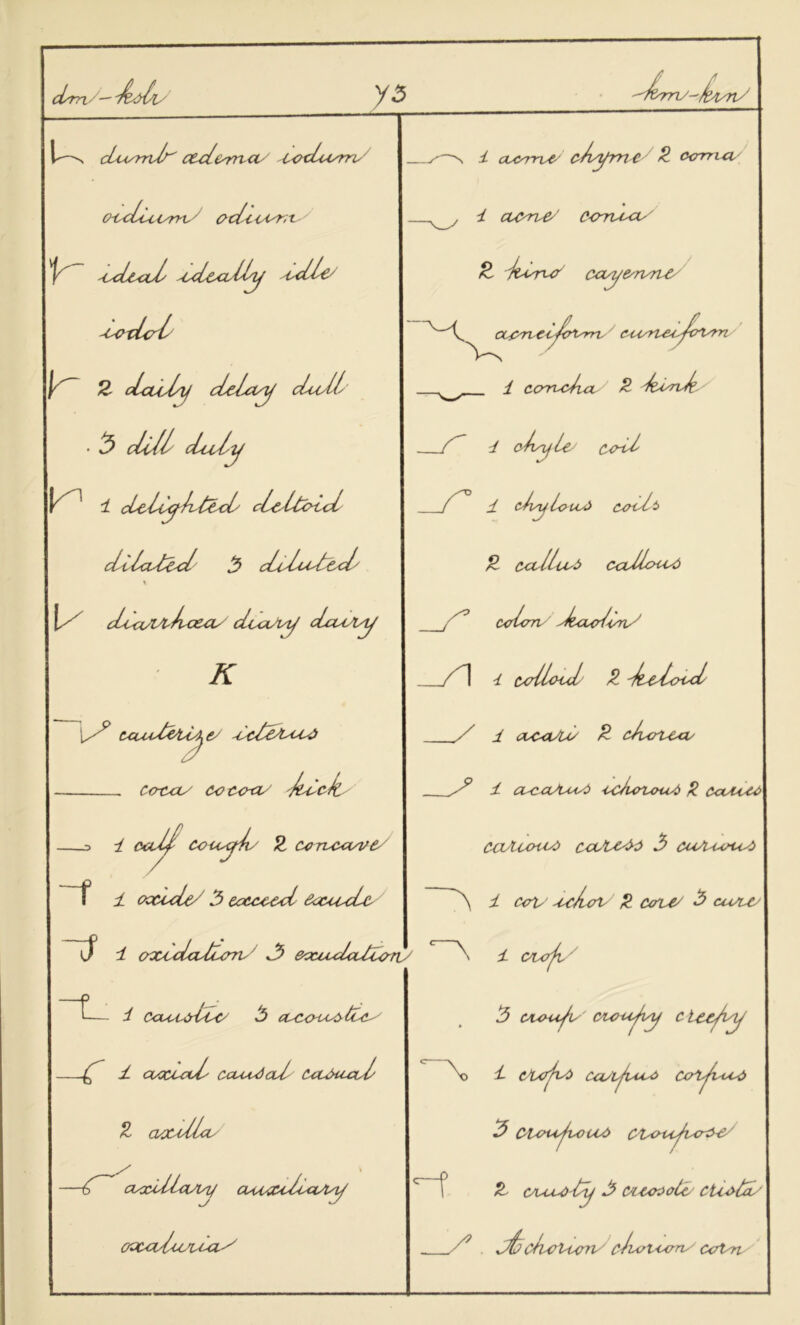 dm-kolt
73
krm-krn
dumb œdema iodum
oidium odium
ideal ideally idle
iodol
2 daily delay dull
3 dill duly
1 delighted deltoid
dilated 3 diluted
diarrhœa diary dairy
K
cauterize icterus
coca cocoa kick
1 calf cough 2 concave
1 oxide 3 exceed exude
1 oxidation 3 exudation
1 caustic 3 acoustic
1 axial causal casual
2 axilla
axillary auxiliary
oxaluria
1 acme chyme 2 coma
1 acne conia
2 kino cayenne
acneiform cuneiform
1 concha 2 kink
1 chyle coil
1 chylous coils
2 callus callous
colon kaolin
1 colloid 2 keloid
1 acari 2 chorea
1 acarus ichorous 2 caries
carious caress 3 curious
1 cor ichor 2 core 3 cure
1 crop
3 croup croupy creepy
1 crops carpus corpus
3 croupous croupose
2 crusty 3 creosote crista
chorion chorion corn